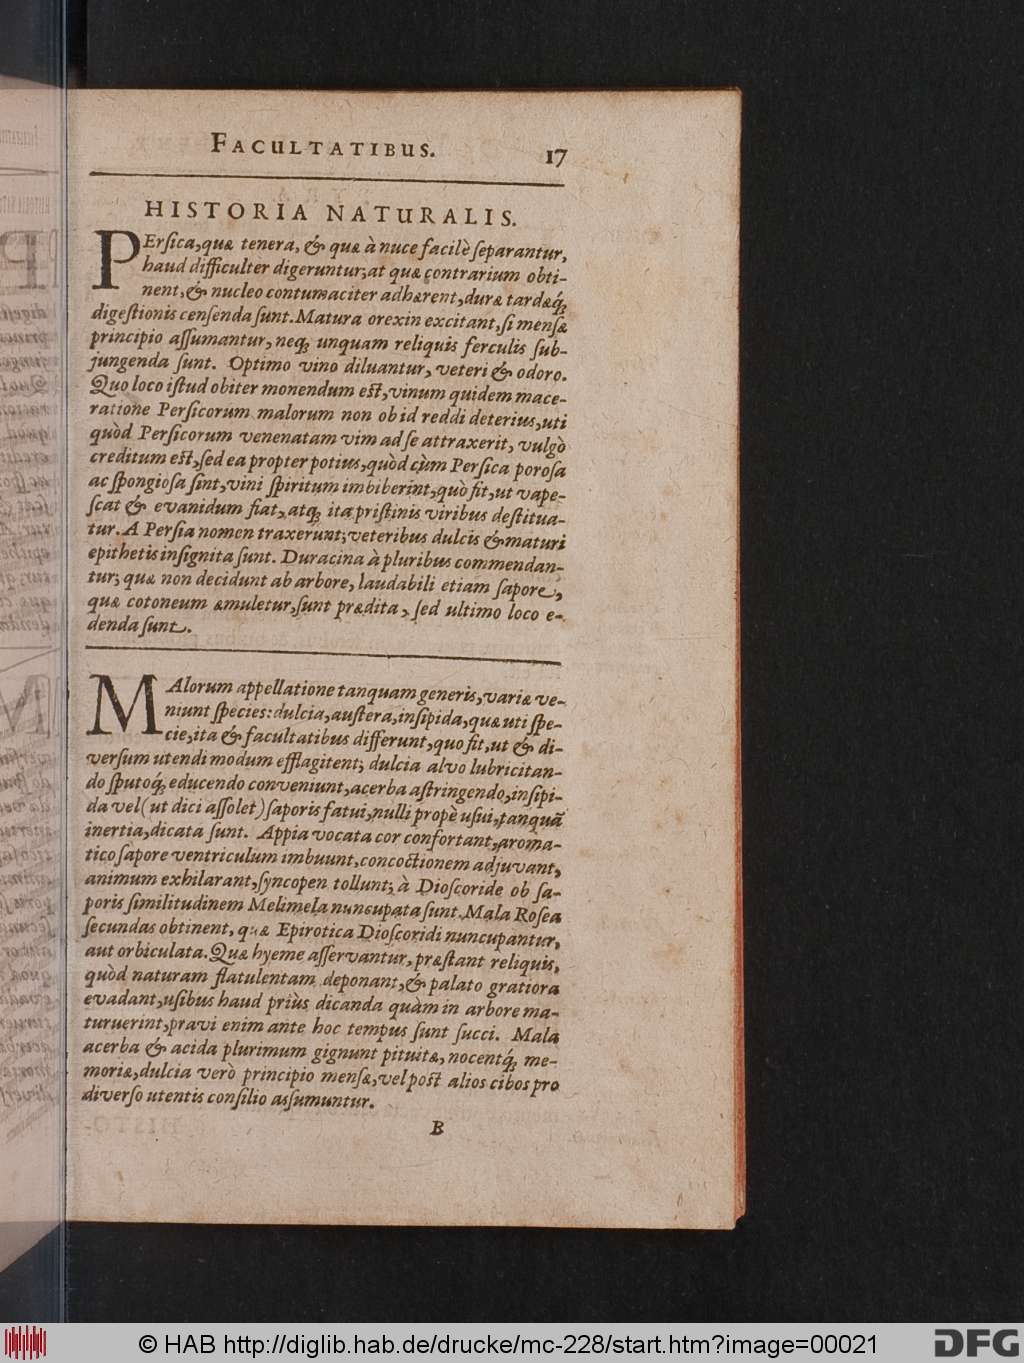 FACULTATIBUS. 17
HISTORIA NATURALIS.
PErsica, quæ tenera, & quæ à nuce facilè separantur,
haud difficulter digeruntur; at quæ contrarium obti-
nent, & nucleo contumaciter adhærent, duræ tardæq́;
digestionis censenda sunt. Matura orexin excitant, si mensæ
principio assumantur, neq; unquam reliquis ferculis sub-
jungenda sunt. Optimo vino diluantur, veteri & odoro.
Quo loco istud obiter monendum est, vinum quidem mace-
ratione Persicorum malorum non ob id reddi deterius, uti
quòd Persicorum venenatam vim ad se attraxerit, vulgò
creditum est, sed ea propter potius, quòd cùm Persica porosa
ac spongiosa sint, vini spiritum imbiberint, quò fit, ut vape-
scat & evanidum fiat, atq; ita pristinis viribus destitua-
tur. A Persia nomen traxerunt; veteribus dulcis & maturi
epithetis insignita sunt. Duracina à pluribus commendan-
tur; quæ non decidunt ab arbore, laudabili etiam sapore,
quæ cotoneum æmuletur, sunt prædita, sed ultimo loco e-
denda sunt.
MAlorum appellatione tanquam generis, variæ ve-
niunt species: dulcia, austera, insipida, quæ uti spe-
cie, ita & facultatibus differunt, quo fit, ut & di-
versum utendi modum efflagitent; dulcia alvo lubricitan-
do sputoq́; educendo conveniunt, acerba astringendo, insipi-
da vel (ut dici assolet) saporis fatui, nulli propè usui, tanquã
inertia, dicata sunt. Appia vocata cor confortant, aroma-
tico sapore ventriculum imbuunt, concoctionem adjuvant,
animum exhilarant, syncopen tollunt; à Dioscoride ob sa-
poris similitudinem Melimela nuncupata sunt. Mala Rosea
secundas obtinent, quæ Epirotica Dioscoridi nuncupantur,
aut orbiculata. Quæ hyeme asservantur, præstant reliquis,
quòd naturam flatulentam deponant, & palato gratiora
evadant, usibus haud priùs dicanda quàm in arbore ma-
turuerint, pravi enim ante hoc tempus sunt succi. Mala
acerba & acida plurimum gignunt pituitæ, nocentq́; me-
moriæ, dulcia verò principio mensæ, vel post alios cibos pro
diverso utentis consilio assumuntur.
B
© HAB http://diglib.hab.de/drucke/mc-228/start.htm?image=00021
DFG